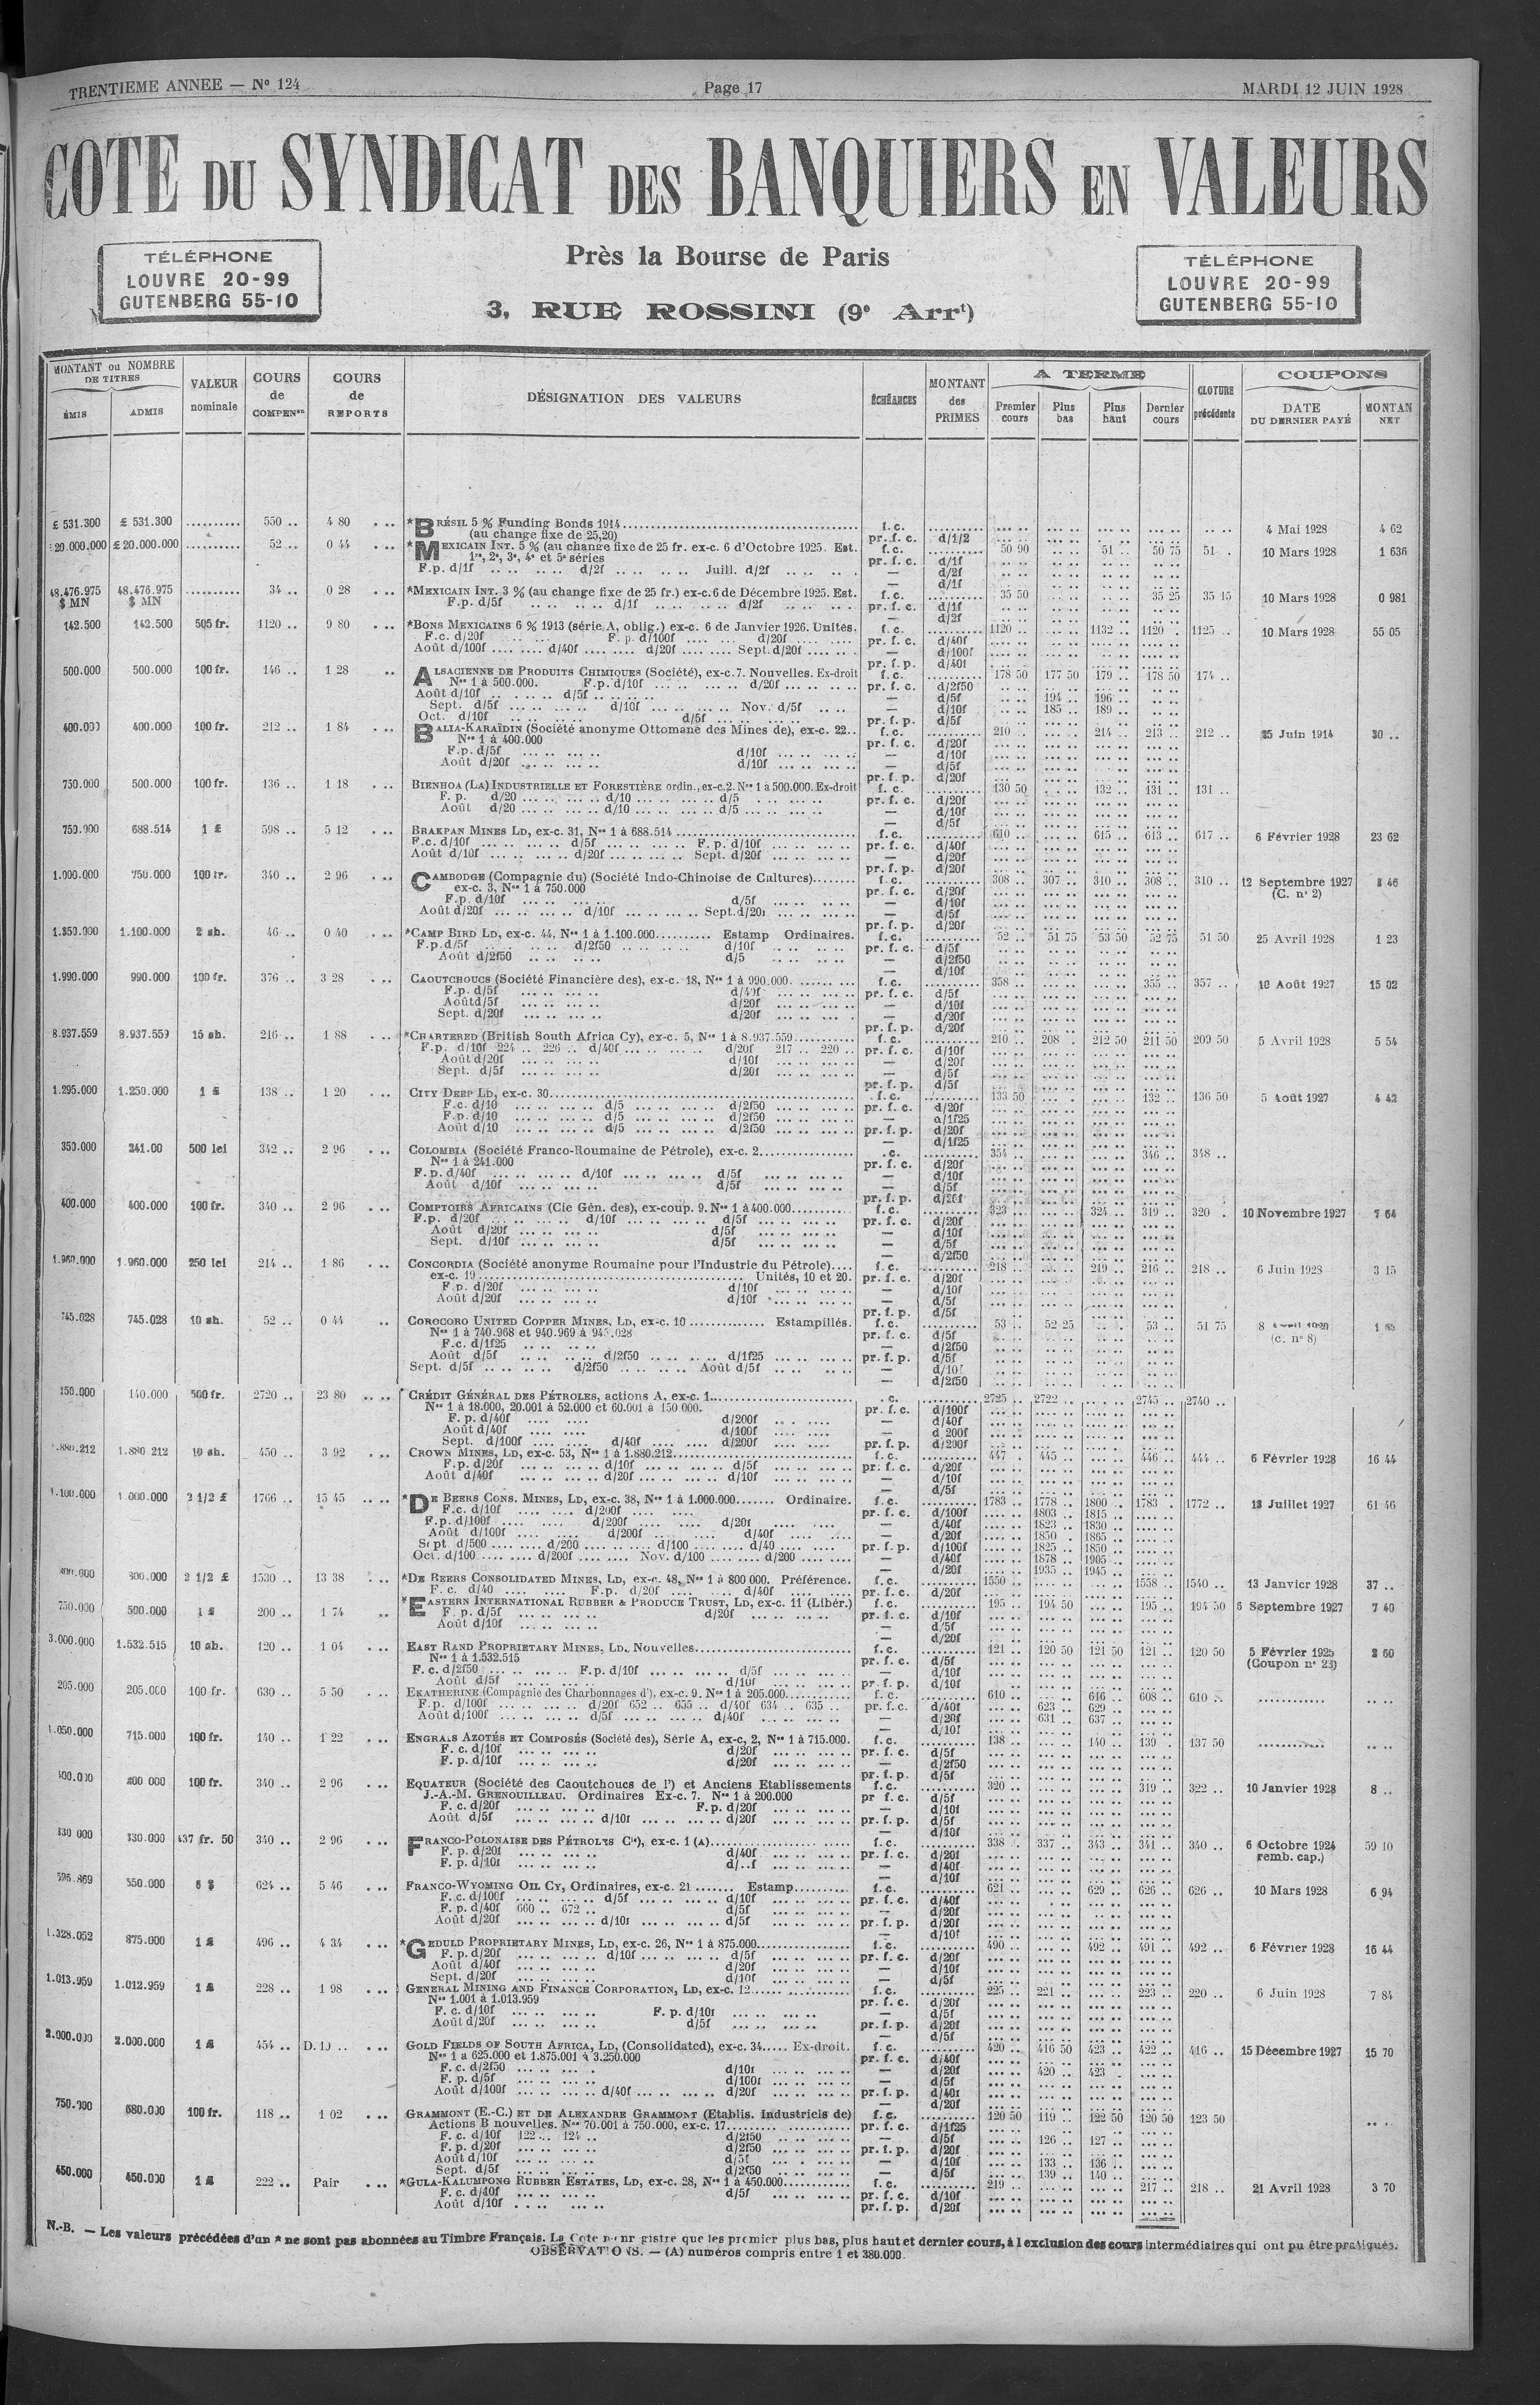 TRENTIEME ANNEE — Nº 124
Page 17
MARDI 12 JUIN 1928
COTE DU SYNDICAT DES BANQUIERS EN VALEURS
TÉLÉPHONE
LOUVRE 20-99
GUTENBERG 55-10
Près la Bourse de Paris
3, RUE ROSSINI (9e Arrt)
TÉLÉPHONE
LOUVRE 20-99
GUTENBERG 55-10
MONTANT ou NOMBRE DE TITRES
ÉMIS ADMIS
VALEUR nominale
COURS de COMPENon
COURS de REPORTS
DÉSIGNATION DES VALEURS
ÉCHÉANCES
MONTANT des PRIMES
A TERME
Premier cours Plus bas Plus haut Dernier cours
CLOTURE précédente
COUPONS
DATE DU DERNIER PAYÉ
MONTAN NET
£ 531.300 £ 531.300 .......... 550 .. 4 80 *BRÉSIL 5 % Funding Bonds 1914 f.c. 4 Mai 1928 4 62
(au change fixe de 25,20) pr. f. c. d/1/2
20.000.000 £ 20.000.000 .......... 52 .. 0 44 *MEXICAIN INT. 5 % (au change fixe de 25 fr. ex-c. 6 d'Octobre 1925. Est. f.c. 50 90 51 .. 50 75 51 . 10 Mars 1928 1 636
1re, 2e, 3e, 4e et 5e séries pr. f. c. d/1f
F.p. d/1f d/2f Juill. d/2f — d/2f
— d/1f
48.476.975 $ MN 48.476.975 $ MN .......... 34 .. 0 28 *MEXICAIN INT. 3 % (au change fixe de 25 fr.) ex-c.6 de Décembre 1925. Est. f.c. 35 50 35 25 35 15 10 Mars 1928 0 981
F.p. d/5f d/1f d/2f pr. f. c. d/1f
— d/2f
142.500 142.500 505 fr. 1120 .. 9 80 *BONS MEXICAINS 6 % 1913 (série A, oblig.) ex-c. 6 de Janvier 1926. Unités. f.c. 1120 .. 1132 .. 1120 . 1125 .. 10 Mars 1928 55 05
F.c. d/20f F. p. d/100f d/20f pr. f. c. d/40f
Août d/100f d/40f d/20f Sept. d/20f — d/100f
pr. f. p. d/40f
500.000 500.000 100 fr. 146 .. 1 28 ALSACIENNE DE PRODUITS CHIMIQUES (Société), ex-c.7. Nouvelles. Ex-droit f.c. 178 50 177 50 179 .. 178 50 174 ..
Nos 1 à 500.000. F.p. d/10f d/20f pr. f. c. d/2f50
Août d/10f d/5f — d/5f 194 .. 196 ..
Sept. d/5f d/10f Nov. d/5f — d/10f 185 .. 189 ..
Oct. d/10f d/5f pr. f. p. d/5f
400.000 400.000 100 fr. 212 .. 1 84 BALIA-KARAÏDIN (Société anonyme Ottomane des Mines de), ex-c. 22.. f.c. 210 .. 214 .. 213 .. 212 .. 25 Juin 1914 30 ..
Nos 1 à 400.000 pr. f. c. d/20f
F.p. d/5f d/10f — d/10f
Août d/20f d/10f — d/5f
pr. f. p. d/20f
750.000 500.000 100 fr. 136 .. 1 18 BIENHOA (LA) INDUSTRIELLE ET FORESTIÈRE ordin., ex-c.2. Nos 1 à 500.000. Ex-droit f. c. 130 50 132 .. 131 .. 131 ..
F. p. d/20 d/10 d/5 pr. f. c. d/20f
Août d/20 d/10 d/5 — d/10f
— d/5f
750.000 688.514 1 £ 598 .. 5 12 BRAKPAN MINES LD, ex-c. 31, Nos 1 à 688.514 f.c. 610 .. 615 .. 613 .. 617 .. 6 Février 1928 23 62
F.c. d/10f d/5f F. p. d/10f pr. f. c. d/40f
Août d/10f d/20f Sept. d/20f — d/20f
pr. f. p. d/20f
1.000.000 750.000 100 fr. 340 .. 2 96 CAMBODGE (Compagnie du) (Société Indo-Chinoise de Cultures) f.c. 308 .. 307 .. 310 .. 308 .. 310 .. 12 Septembre 1927 46
ex-c. 3, Nos 1 à 750.000 pr. f. c. d/20f (C. nº 2)
F.p. d/10f d/5f — d/10f
Août d/20f d/10f Sept. d/20f — d/5f
pr. f. p. d/20f
1.100.000 2 sh. 46 .. 0 40 *CAMP BIRD LD, ex-c. 44, Nos 1 à 1.100.000 Estamp Ordinaires. f.c. 52 .. 51 75 53 50 52 75 51 50 25 Avril 1928 1 23
F.p.d/5f d/2f50 d/10f pr. f. c. d/5f
Août d/2f50 d/5 — d/2f50
— d/10f
1.990.000 990.000 100 fr. 376 .. 3 28 CAOUTCHOUCS (Société Financière des), ex-c. 18, Nos 1 à 990.000. f.c. 358 .. 355 .. 357 .. 10 Août 1927 15 02
F.p. d/5f d/40f pr. f. c. d/5f
Août d/5f d/20f — d/10f
Sept. d/20f d/20f — d/20f
pr. f. p. d/20f
8.937.559 8.937.559 15 sh. 216 .. 1 88 *CHARTERED (British South Africa Cy), ex-c. 5, Nos 1 à 8.937.559 f.c. 210 .. 208 . 212 50 211 50 209 50 5 Avril 1928 5 54
F.p. d/10f 224 .. 226 .. d/40f d/20f 217 .. 220 .. pr. f. c. d/10f
Août d/20f d/10f — d/20f
Sept. d/5f d/20f — d/5f
pr. f. p. d/5f
1.295.000 1.250.000 1 £ 138 .. 1 20 CITY DEEP LD, ex-c. 30 f.c. 133 50 132 .. 136 50 5 Août 1927 4 42
F.c. d/10 d/5 d/2f50 pr. f. c. d/20f
F.p. d/10 d/5 d/2f50 — d/1f25
Août d/10 d/5 d/2f50 pr. f. p. d/20f
— d/1f25
350.000 241.00 500 lei 342 .. 2 96 COLOMBIA (Société Franco-Roumaine de Pétrole), ex-c. 2 .c. 354 .. 346 .. 348 ..
Nos 1 à 241.000 pr. f. c. d/20f
F. p. d/40f d/10f d/5f — d/10f
Août d/10f d/5f — d/5f
pr. f. p. d/20f
400.000 400.000 100 fr. 340 .. 2 96 COMPTOIRS AFRICAINS (Cie Gén. des), ex-coup. 9. Nos 1 à 400.000 f.c. 323 .. 324 .. 319 .. 320 . 10 Novembre 1927 7 64
F.p. d/20f d/10f d/5f pr. f. c. d/20f
Août d/20f d/5f — d/10f
Sept. d/10f d/5f — d/5f
— d/2f50
1.960.000 1.960.000 250 lei 214 .. 1 86 CONCORDIA (Société anonyme Roumaine pour l'Industrie du Pétrole) f.c. 218 .. 219 .. 216 .. 218 .. 6 Juin 1928 3 15
ex-c. 19 Unités, 10 et 20. pr. f. c. d/20f
F. p. d/20f d/10f — d/10f
Août d/20f d/10f — d/5f
pr. f. p. d/5f
745.028 745.028 10 sh. 52 .. 0 44 COROCORO UNITED COPPER MINES, LD, ex-c. 10 Estampillés. f.c. 53 .. 52 25 53 .. 51 75 8
Nos 1 à 740.968 et 940.969 à pr. f. c. d/5f (c. nº 8)
F.c. d/1f25 — d/2f50
Août d/5f d/2f50 d/1f25 pr. f. p. d/5f
Sept. d/5f d/2f50 Août d/5f — d/10f
— d/2f50
150.000 140.000 500 fr. 2720 .. 23 80 CRÉDIT GÉNÉRAL DES PÉTROLES, actions A, ex-c. 1 . c. 2725 .. 2722 .. 2745 .. 2740 ..
Nos 1 à 18.000, 20.001 à 52.000 et 60.001 à 150 000. pr. f. c. d/100f
F. p. d/40f d/200f — d/40f
Août d/40f d/100f — d 200f
Sept. d/100f d/40f d/200f pr. f. p. d/200f
1.880.212 1.880 212 10 sh. 450 .. 3 92 CROWN MINES, LD, ex-c. 53, Nos 1 à 1.880.212 f.c. 447 . 445 .. 446 .. 444 .. 6 Février 1928 16 44
F.p. d/20f d/10f d/5f pr. f. c. d/20f
Août d/40f d/20f d/10f — d/10f
— d/5f
1.100.000 1 000.000 2 1/2 £ 1766 .. 15 45 *DE BEERS CONS. MINES, LD, ex-c. 38, Nos 1 à 1.000.000 Ordinaire. f.c. 1783 .. 1778 .. 1800 . 1783 .. 1772 .. 13 Juillet 1927 61 46
F.c. d/10f d/200f pr. f. c. d/100f 1803 .. 1815 ..
F.p. d/100f d/200f d/20f — d/40f 1823 .. 1830 ..
Août d/100f d/200f d/40f — d/20f 1850 .. 1865 ..
Sept d/500 d/200 d/100 d/40 pr. f. p. d/100f 1825 .. 1850 ..
Oct. d/100 d/200f Nov. d/100 d/200 — d/40f 1878 .. 1905 ..
— d/20f 1935 .. 1945 ..
800.000 800.000 2 1/2 £ 1530 .. 13 38 *DE BEERS CONSOLIDATED MINES, LD, ex-c. 48, Nos 1 à 800 000. Préférence. f.c. 1550 .. 1558 .. 1540 .. 13 Janvier 1928 37 ..
F. c. d/40 F.p. d/20f d/40f pr. f. c. d/20f
750.000 500.000 1 £ 200 .. 1 74 *EASTERN INTERNATIONAL RUBBER & PRODUCE TRUST, LD, ex-c. 11 (Libér.) f.c. 195 .. 194 50 195 .. 194 50 Septembre 1927 7 40
F. p. d/5f d/20f pr. f. c. d/10f
Août d/10f — d/5f
— d/20f
3.000.000 1.532.515 10 sh. 120 .. 1 04 EAST RAND PROPRIETARY MINES, LD. Nouvelles f.c. 121 .. 120 50 121 50 121 .. 120 50 5 Février 1925 60
Nos 1 à 1.532.515 pr. f. c. d/5f (Coupon nº 23)
F. c. d/2f50 F.p. d/10f d/5f — d/10f
Août d/5f d/10f pr. f. p. d/10f
205.000 205.000 100 fr. 630 .. 5 50 EKATHERINE (Compagnie des Charbonnages d'), ex-c. 9. Nos 1 à 205.000 f. c. 610 .. 616 .. 608 .. 610 ..
F.p. d/100f d/20f 652 .. 655 .. d/40f 634 .. 635 .. pr. f.c. d/40f 623 .. 629 ..
Août d/100f d/5f d/40f — d/20f 631 .. 637 ..
— d/10f
1.050.000 715.000 100 fr. 140 .. 1 22 ENGRAIS AZOTÉS ET COMPOSÉS (Société des), Série A, ex-c, 2, Nos 1 à 715.000. f.c. 138 .. 140 .. 139 . 137 50
F. c. d/10f d/20f pr. f. c. d/5f
F. p. d/10f d/20f — d/2f50
pr. f. p. d/5f
100 fr. 340 .. 2 96 EQUATEUR (Société des Caoutchoucs de l') et Anciens Etablissements f.c. 320 .. 319 .. 322 .. 10 Janvier 1928 8 ..
J.-A.-M. GRENOUILLEAU. Ordinaires Ex-c. 7. Nos 1 à 200.000 pr f. c. d/5f
F. c. d/20f F.p. d/20f — d/10f
Août d/5f d/10f d/20f pr. f. p. d/5f
— d/10f
340 .. 2 96 FRANCO-POLONAISE DES PÉTROLES Cie), ex-c. 1 (A) f.c. 338 .. 337 .. 343 .. 341 .. 340 .. 6 Octobre 1924 59 10
F. p. d/20f d/40f pr. f. c. d/20f remb. cap.)
F. p. d/10f d/..f — d/40f
— d/10f
596.869 550.000 5 $ 624 .. 5 46 FRANCO-WYOMING OIL CY, Ordinaires, ex-c. 21 Estamp f.c. 621 .. 629 .. 626 .. 626 .. 10 Mars 1928 6 94
F. c. d/100f d/5f d/10f pr. f. c. d/40f
F. p. d/40f 660 .. 672 .. d/5f — d/20f
Août d/20f d/10f d/5f pr. f. p. d/20f
— d/10f
1.328.052 875.000 1 £ 496 .. 4 34 *GEDULD PROPRIETARY MINES, LD, ex-c. 26, Nos 1 à 875.000 f.c. 490 .. 492 .. 491 .. 492 .. 6 Février 1928 16 44
F. p. d/20f d/10f d/5f pr. f. c. d/20f
Août d/40f d/20f — d/10f
Sept. d/20f d/10f — d/5f
1.013.959 1.012.959 1 £ 228 .. 1 98 GENERAL MINING AND FINANCE CORPORATION, LD, ex-c. 12 f.c. 225 .. 221 .. 223 .. 220 .. 6 Juin 1928 7 84
Nos 1.001 à 1.013.959 pr. f. c. d/20f
F. c. d/10f F. p. d/10f — d/5f
Août d/20f d/5f pr. f. p. d/20f
— d/5f
2.000.000 2.000.000 1 £ 454 .. GOLD FIELDS OF SOUTH AFRICA, LD, (Consolidated), ex-c. 34 Ex-droit. f.c. 420 .. 416 50 423 .. 422 .. 416 .. 15 Décembre 1927 15 70
Nos 1 a 625.000 et 1.875.001 à 3.250.000 pr. f. c. d/40f
F. c. d/2f50 d/10f — d/20f 420 .. 423 .
F. p. d/5f d/100f — d/5f
Août d/100f d/40f d/20f pr. f. p. d/40f
— d/20f
750.000 680.000 100 fr. 118 .. 1 02 GRAMMONT (E.-C.) ET DE ALEXANDRE GRAMMONT (Etablis. Industriels de) f.c. 120 50 119 .. 122 50 120 50 123 50
Actions B nouvelles. Nos 70.001 à 750.000, ex-c. 17 pr. f. c. d/1f25
F. c. d/10f 122 .. 124 .. d/2f50 — d/5f 126 .. 127 ..
F. p. d/20f d/2f50 pr. f. p. d/20f
Août d/10f d/5f — d/10f 133 .. 136 ..
Sept. d/5f d/2f50 — d/5f 139 .. 140 ..
450.000 450.000 1 £ 222 .. Pair *GULA-KALUMPONG RUBBER ESTATES, LD, ex-c. 28, Nos 1 à 450.000 f.c. 219 .. 217 .. 218 .. 21 Avril 1928 3 70
F. c. d/40f d/5f pr. f. c. d/10f
Août d/10f pr. f. p. d/20f
N.-B. — Les valeurs précédées d'un * ne sont pas abonnées au Timbre Français. La Cote que les premier plus bas, plus haut et dernier cours, à l exclusion des cours intermédiaires qui ont pu être pratiqués.
OBSERVATIONS. — (A) numéros compris entre 1 et 380.000.